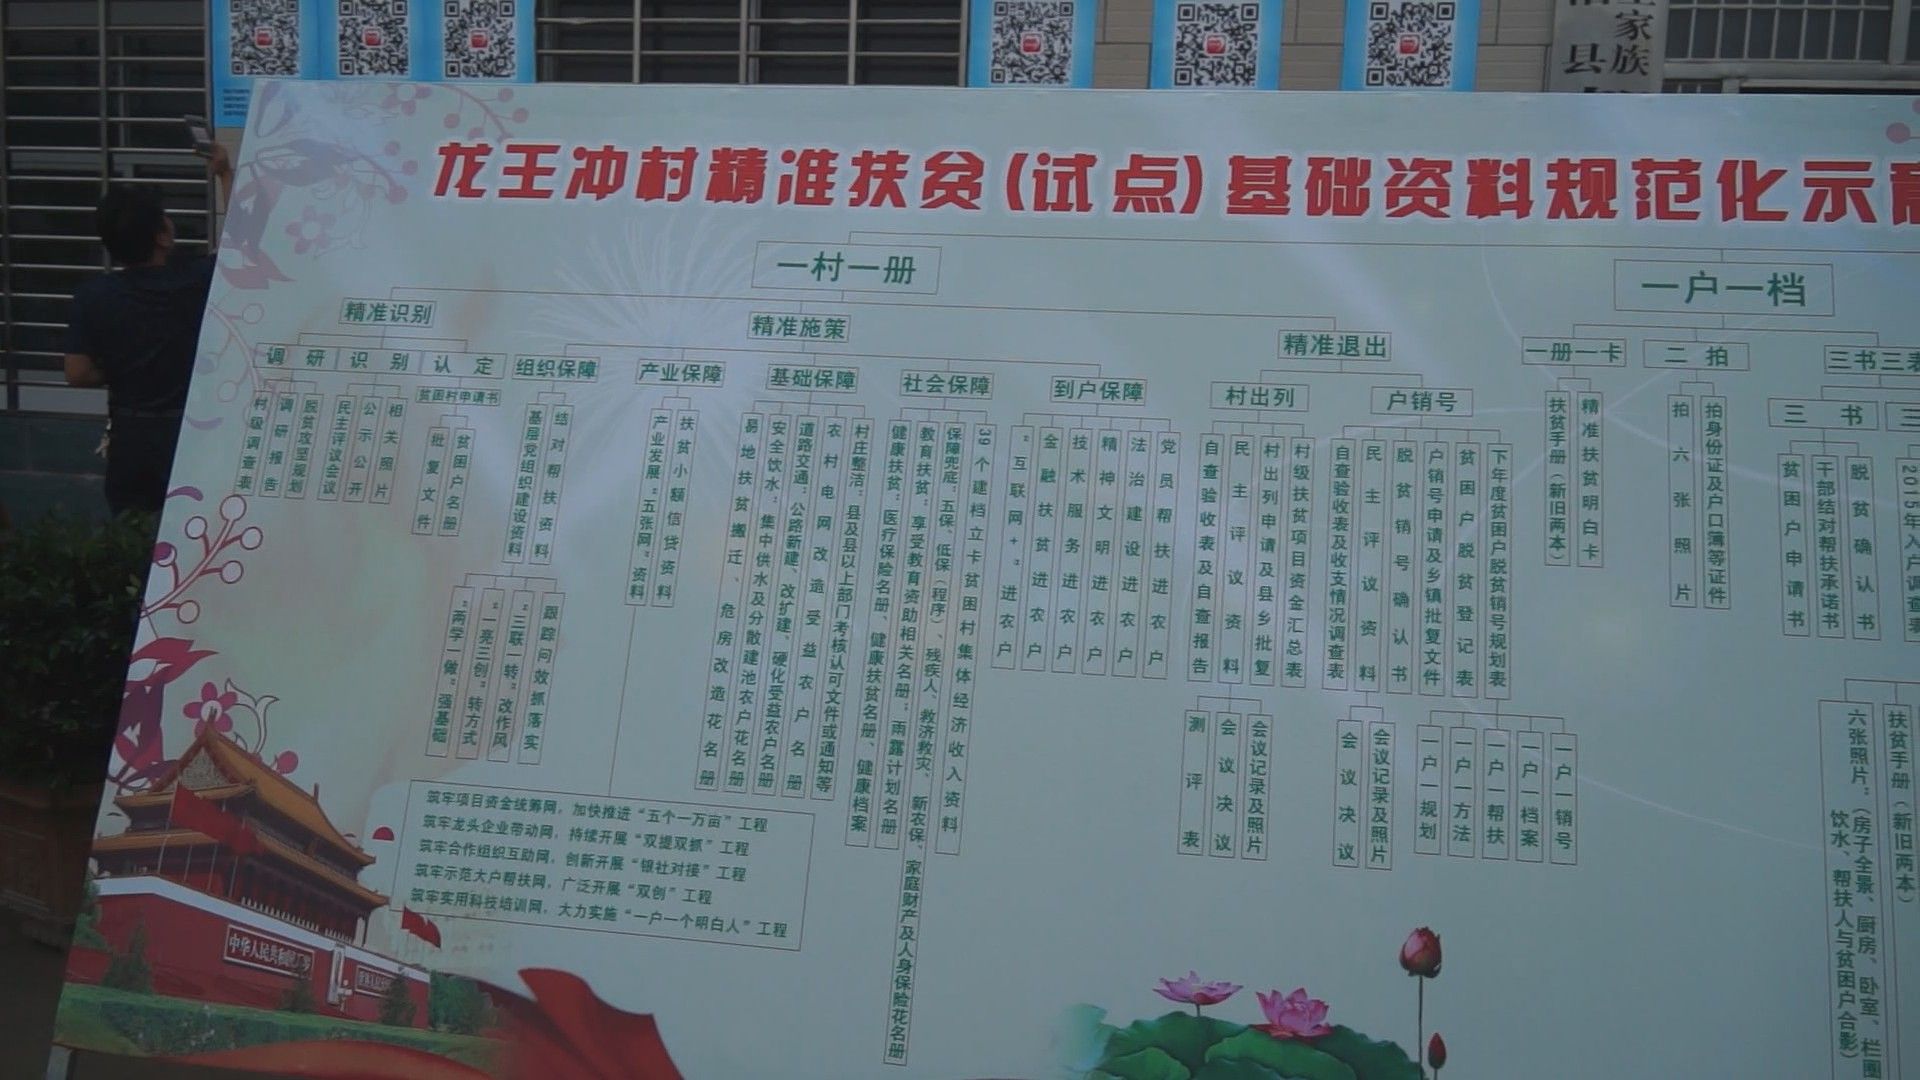 家族
县
龙王冲村精准扶贫(试点)基础资料规范化示意
一村一册
一户一档
精准识别
精准施策
精准退出
一册一卡
二拍
三书三表
调研
识别
认定
组织保障
产业保障
基础保障
社会保障
到户保障
村出列
户销号
三书
三
贫困村申请书
村级调查表
调研报告
脱贫攻坚规划
民主评议会议
公示公开
相关照片
批复文件
贫困户名册
基层党组织建设资料
结对帮扶资料
产业发展“五张网”资料
扶贫小额信贷资料
易地扶贫搬迁、危房改造花名册
安全饮水：集中供水及分散建池农户花名册
道路交通：公路新建、改扩建、硬化受益农户名册
农村电网改造受益农户名册
村庄整洁：县及县以上部门考核认可文件或通知等
健康扶贫：医疗保险名册、健康扶贫名册、健康档案
教育扶贫：享受教育资助相关名册：雨露计划名册
保障兜底：五保、低保（程序）、残疾人、救济救灾、新农保、家庭财产及人身保险花名册
39个建档立卡贫困村集体经济收入资料
“互联网+”进农户
金融扶贫进农户
技术服务进农户
精神文明进农户
法治建设进农户
党员帮扶进农户
自查验收表及自查报告
民主评议资料
村出列申请及县乡批复
村级扶贫项目资金汇总表
自查验收表及收支情况调查表
民主评议资料
脱贫销号确认书
户销号申请及乡镇批复文件
贫困户脱贫登记表
下年度贫困户脱贫销号规划表
扶贫手册（新旧两本）
精准扶贫明白卡
拍六张照片
拍身份证及户口簿等证件
贫困户申请书
干部结对帮扶承诺书
脱贫确认书
2015年入户调查表
“两学一做”强基础
“一亮三创”转方式
“三联一转”改作风
跟踪问效抓落实
测评表
会议决议
会议记录及照片
会议决议
会议记录及照片
一户一规划
一户一方法
一户一帮扶
一户一档案
一户一销号
六张照片：（房子全景、厨房、卧室、栏圈
饮水、帮扶人与贫困户合影）
扶贫手册（新旧两本）
筑牢项目资金统筹网，加快推进“五个一万亩”工程
筑牢龙头企业带动网，持续开展“双提双抓”工程
筑牢合作组织互助网，创新开展“银社对接”工程
筑牢示范大户帮扶网，广泛开展“双创”工程
筑牢实用科技培训网，大力实施“一户一个明白人”工程
中华人民共和国万岁